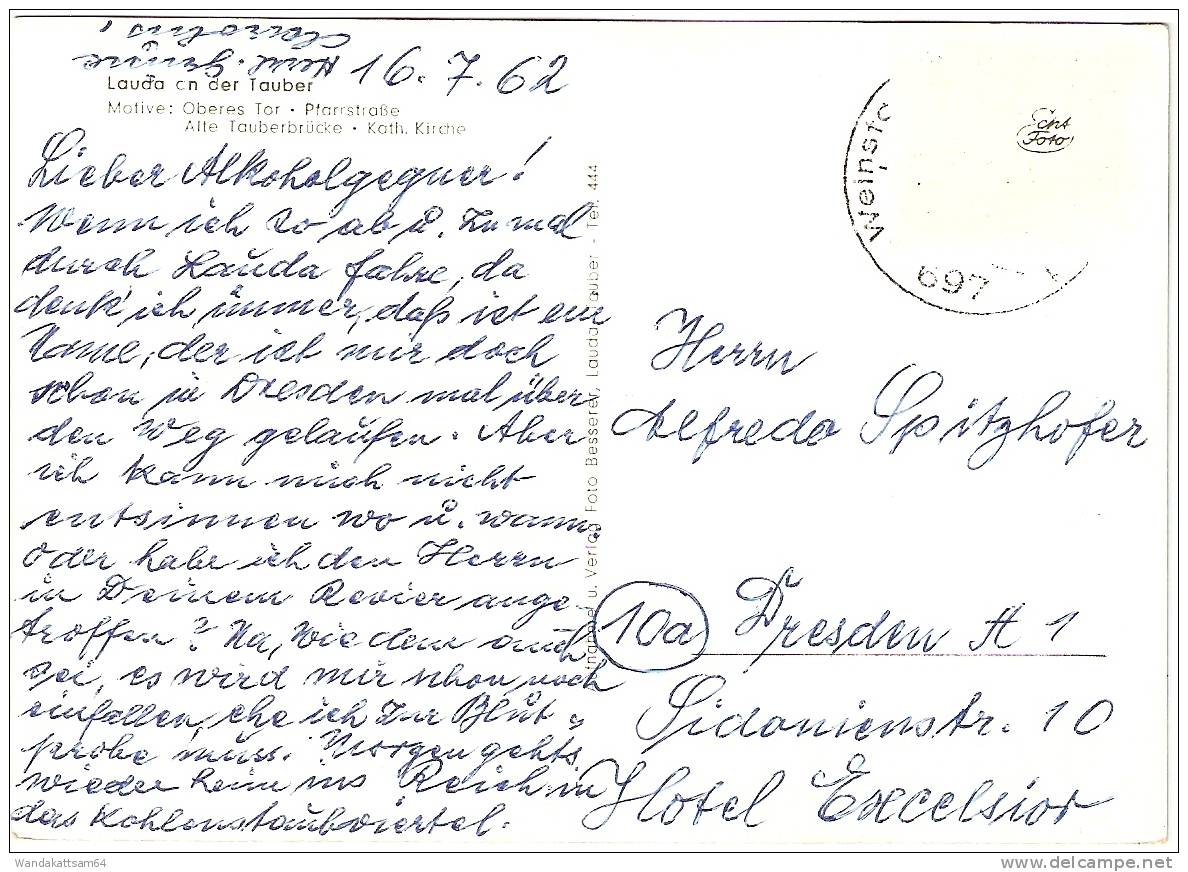 16. 7. 62
Lauda an der Tauber
Motive: Oberes Tor · Pfarrstraße
Alte Tauberbrücke · Kath. Kirche
Lieber Alkoholgegner!
Wenn ich so ab u. zu mal
durch Lauda fahre, da
denk' ich immer, daß ist ein
Name, der ist mir doch
schon in Dresden mal über
den Weg gelaufen. Aber
ich kann mich nicht
entsinnen wo u. wann.
Oder habe ich den Herrn
in Deinem Revier ange-
troffen? Na, wie dem auch
sei, es wird mir schon noch
einfallen, ehe ich zur Blut-
probe muss. Morgen gehts
wieder heim ins Reich in
das Kohlenstaubviertel.
Herzl. Grüße
u. Verlag Foto Besserer, Lauda/Tauber - Tel. 444
Weinsta
697
Echt
Foto
Herrn
Alfredo Spitzhofer
10a Dresden A 1
Sidonienstr. 10
Hotel Excelsior
Wandakattsam64
delcampe.net